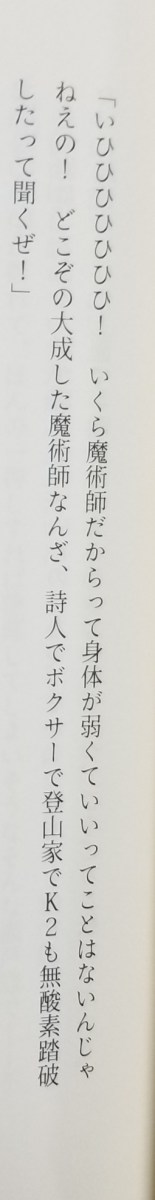 「いひひひひひひひ！　いくら魔術師だからって身体が弱くていいってことはないんじゃ
ねえの！　どこぞの大成した魔術師なんざ、詩人でボクサーで登山家でK2も無酸素踏破
したって聞くぜ！」